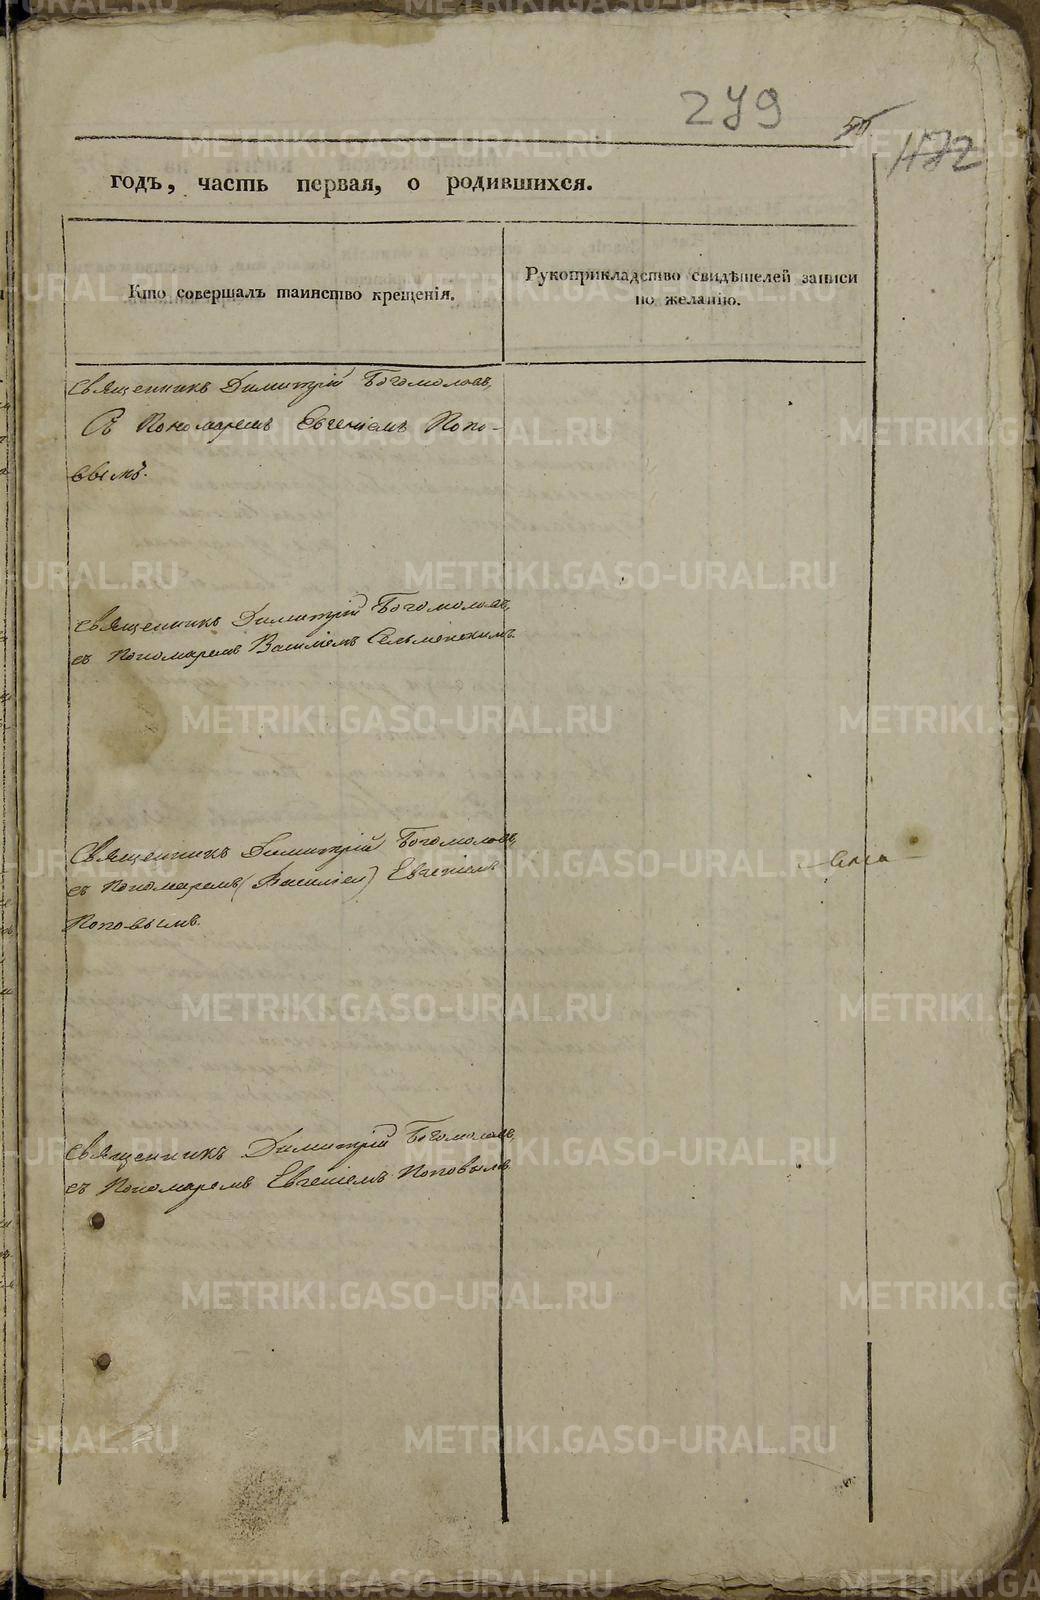 279
472
годъ, часть первая, о родившихся.
Кто совершалъ таинство крещенія.
Рукоприкладство свидѣтелей записи
по желанію.
Священникъ Димитрій Богомоловъ,
Съ Пономаремъ Евгеніемъ Попо-
вымъ.
Священникъ Димитрій Богомоловъ,
съ Пономаремъ Василіемъ Сельменскимъ
Священникъ Димитрій Богомоловъ,
съ Пономаремъ (Василіем) Евгеніемъ
Поповымъ.
Священникъ Димитрій Богомоловъ,
съ Пономаремъ Евгеніемъ Поповымъ
METRIKI.GASO-URAL.RU